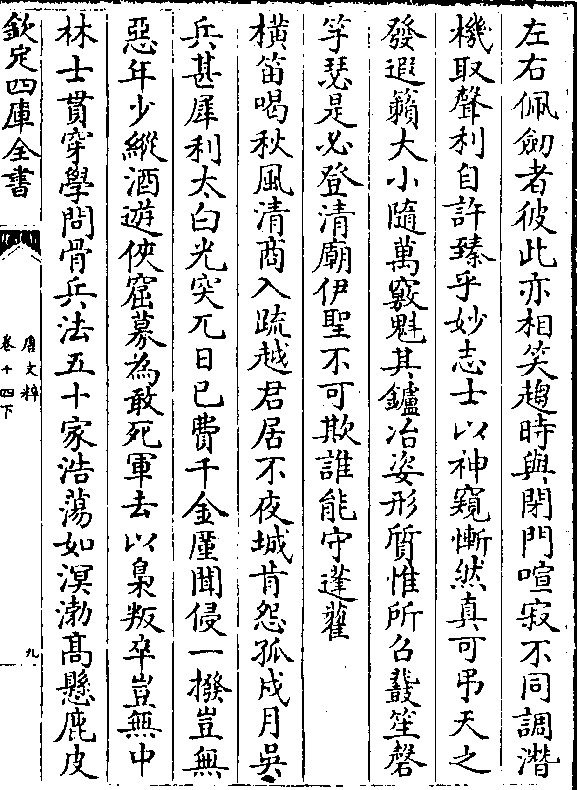 左右佩劒者彼此亦相笑趨時與閉門喧寂不同調潛
機取聲利自許臻乎妙志士以神窺慚然真可弔天之
發遐籟大小隨萬竅魁其鑪冶姿形質惟所召鼗笙磬
竽瑟是必登清廟伊聖不可欺誰能守蓬藋
橫笛喝秋風清商入疏越君居不夜城肯怨孤戍月吳
兵甚犀利太白光突兀日已費千金廑聞侵一撥豈無
惡年少縱酒遊俠窟募為敢死軍去以梟叛卒豈無中
林士貫穿學問骨兵法五十家浩蕩如溟渤高懸鹿皮
欽定四庫全書
唐文粹
卷十四下
九